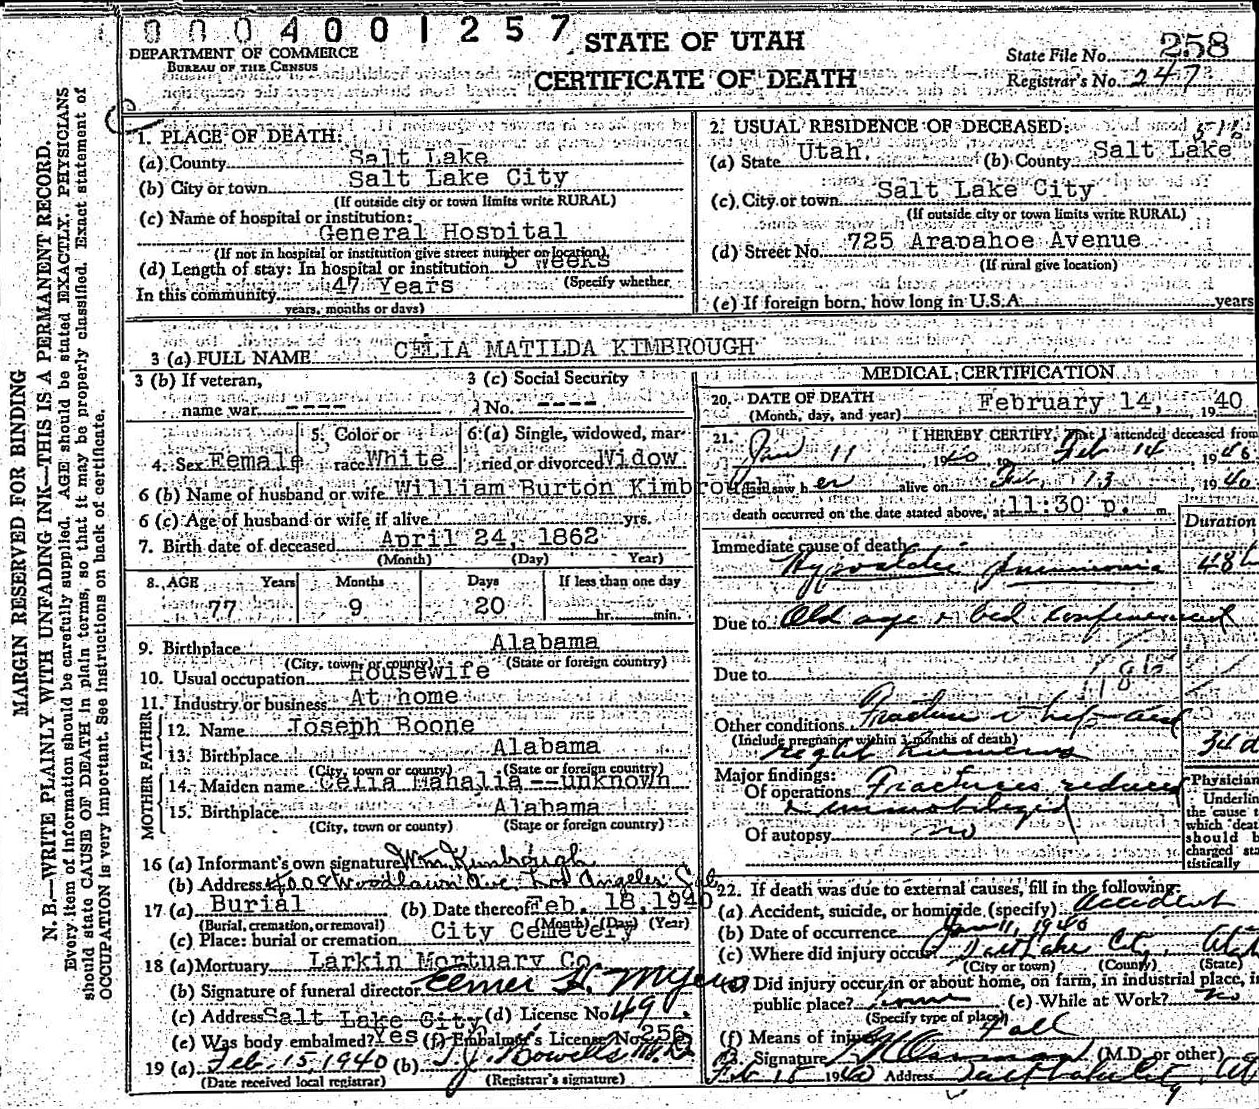 0004001257
DEPARTMENT OF COMMERCE
BUREAU OF THE CENSUS
STATE OF UTAH
CERTIFICATE OF DEATH
State File No. 258
Registrar's No. 247
MARGIN RESERVED FOR BINDING
N. B.—WRITE PLAINLY WITH UNFADING INK—THIS IS A PERMANENT RECORD.
Every item of information should be carefully supplied. AGE should be stated EXACTLY. PHYSICIANS
should state CAUSE OF DEATH in plain terms, so that it may be properly classified. Exact statement of
OCCUPATION is very important. See instructions on back of certificate.
1. PLACE OF DEATH:
(a) County Salt Lake
(b) City or town Salt Lake City
(If outside city or town limits write RURAL)
(c) Name of hospital or institution:
General Hospital
(If not in hospital or institution give street number or location)
(d) Length of stay: In hospital or institution 5 Weeks
(Specify whether
In this community 47 Years
years, months or days)
2. USUAL RESIDENCE OF DECEASED:
(a) State Utah. (b) County Salt Lake
(c) City or town Salt Lake City
(If outside city or town limits write RURAL)
(d) Street No. 725 Arapahoe Avenue
(If rural give location)
(e) If foreign born, how long in U.S.A. years
3 (a) FULL NAME CELIA MATILDA KIMBROUGH
3 (b) If veteran,
name war ----
3 (c) Social Security
No. ----
4. Sex Female
5. Color or
race White
6 (a) Single, widowed, mar-
ried or divorced Widow
6 (b) Name of husband or wife William Burton Kimbrough
6 (c) Age of husband or wife if alive yrs.
7. Birth date of deceased April 24, 1862
(Month) (Day) Year)
8. AGE Years Months Days If less than one day
77 9 20 hr. min.
9. Birthplace Alabama
(City, town, or county) (State or foreign country)
10. Usual occupation Housewife
11. Industry or business At home
FATHER
12. Name Joseph Boone
13. Birthplace Alabama
(City, town or county) (State or foreign country)
MOTHER
14. Maiden name Celia Mahalia --unknown
15. Birthplace Alabama
(City, town or county) (State or foreign country)
16 (a) Informant's own signature Wm. Kimbrough
(b) Address 4008 Woodlawn Ave, Los Angeles
17 (a) Burial (b) Date thereof Feb. 18, 1940
(Burial, cremation, or removal) (Month) (Day) (Year)
(c) Place: burial or cremation City Cemetery
18 (a) Mortuary Larkin Mortuary Co
(b) Signature of funeral director Elmer H. Myers
(c) Address Salt Lake City (d) License No. 49
(e) Was body embalmed? Yes (f) Embalmer's License No. 256
19 (a) Feb. 15, 1940 (b) T. J. Howells M.D.
(Date received local registrar) (Registrar's signature)
MEDICAL CERTIFICATION
20. DATE OF DEATH February 14, 1940
(Month, day, and year)
21. I HEREBY CERTIFY, That I attended deceased from
Jan 11, 1940 to Feb 14, 1940
I last saw her alive on Feb. 13, 1940
death occurred on the date stated above, at 11:30 p. m.
Duration
Immediate cause of death
Hypostatic pneumonia 48 h
Due to Old age & bed confinement
Due to
Other conditions Fracture r hip and
(Include pregnancy within 3 months of death)
right humerus 34 d
Major findings:
Of operations Fractures reduced
& immobilized
Of autopsy no
Physician
Underline
the cause to
which death
should be
charged sta-
tistically
22. If death was due to external causes, fill in the following:
(a) Accident, suicide, or homicide (specify) Accident
(b) Date of occurrence Jan 11, 1940
(c) Where did injury occur? Salt Lake City, Utah
(City or town) (County) (State)
(d) Did injury occur in or about home, on farm, in industrial place, in
public place? home (e) While at Work? no
(Specify type of place)
(f) Means of injury Fall
23. Signature (M.D. or other)
Feb 15 1940 Address Salt Lake City,